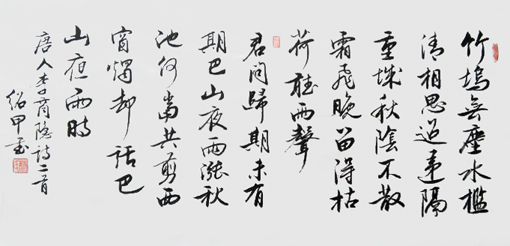 竹塢無塵水檻
清相思迢遞隔
重城秋陰不散
霜飛晚留得枯
荷聽雨聲
君問歸期未有
期巴山夜雨漲秋
池何當共剪西
窗燭却話巴
山夜雨時
唐人李商隱詩二首
紹甲書